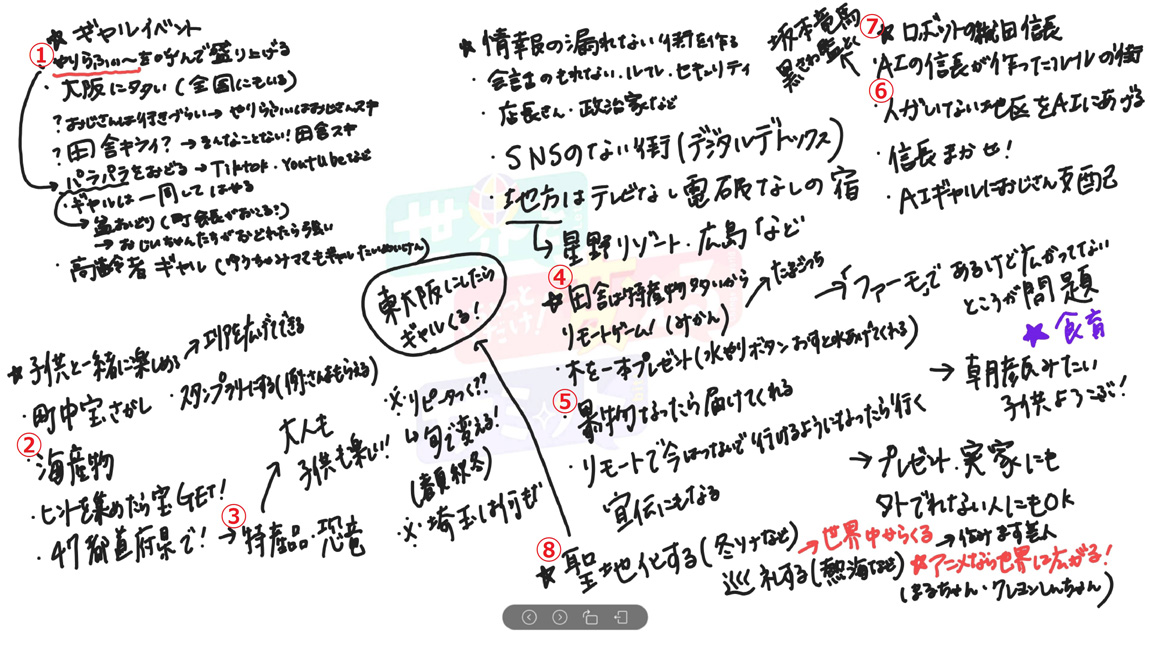 ① ★ギャルイベント
やりらふぃ〜を呼んで盛り上げる
・大阪にタタい(全国にもいる)
?おじさんは行きづらい→やりらふぃはおじさんスキ
?田舎キライ?→そんなことない!田舎スキ
・パラパラをおどる→Tiktok・Youtubeなど
・ギャルは一周してはやる
→盆おどり(町会長がおこる?)
→おじいちゃんたちがおどれたら強い
・高齢者ギャル(ゆうちゃみママもギャルたいめいけん)
★子供と一緒に楽しめる→エリアを広げてできる
・町中宝さがし
・スタンプラリーにする(例:さんまもらえる)
② ・海産物
・ヒントを集めたら宝GET!
・47都道府県で!
③ →特産品・恐竜
大人も
子供も楽しい!
東大阪にしたら
ギャルくる!
※リピータつく??
↳旬で変える!
(春夏秋冬)
※埼玉は何も
★情報の漏れない街を作る
・会話のもれない・ルール・セキュリティ
・店長さん・政治家など
・SNSのない街(デジタルデトックス)
・地方はテレビなし電磁なしの宿
↳星野リゾート・広島など
④ ★田舎は特産物タタいから
リモートゲーム!(みかん)
→たまごっち
木を一本プレゼント(水やりボタンおすと水あげてくれる)
→「ファーモ」であるけど広がってない
ところが問題
★食育
⑤ 果物なったら届けてくれる
→朝産みたい
子供よろこぶ!
・リモートで今はつないで行けるようになったら行く
宣伝にもなる
→プレゼント・実家にも
外でれない人にもOK
⑧ ★聖地化する(冬ソナなど)
→世界中からくる
→
巡礼する(熱海など)
★アニメなら世界に広がる!
(まるちゃん・クレヨンしんちゃん)
坂本竜馬
⑦ ★ロボットの織田信長
・AIの信長が作ったルールの街
⑥ ・人がいない地区をAIにあげる
・信長まかせ!
・AIギャルにおじさん支配